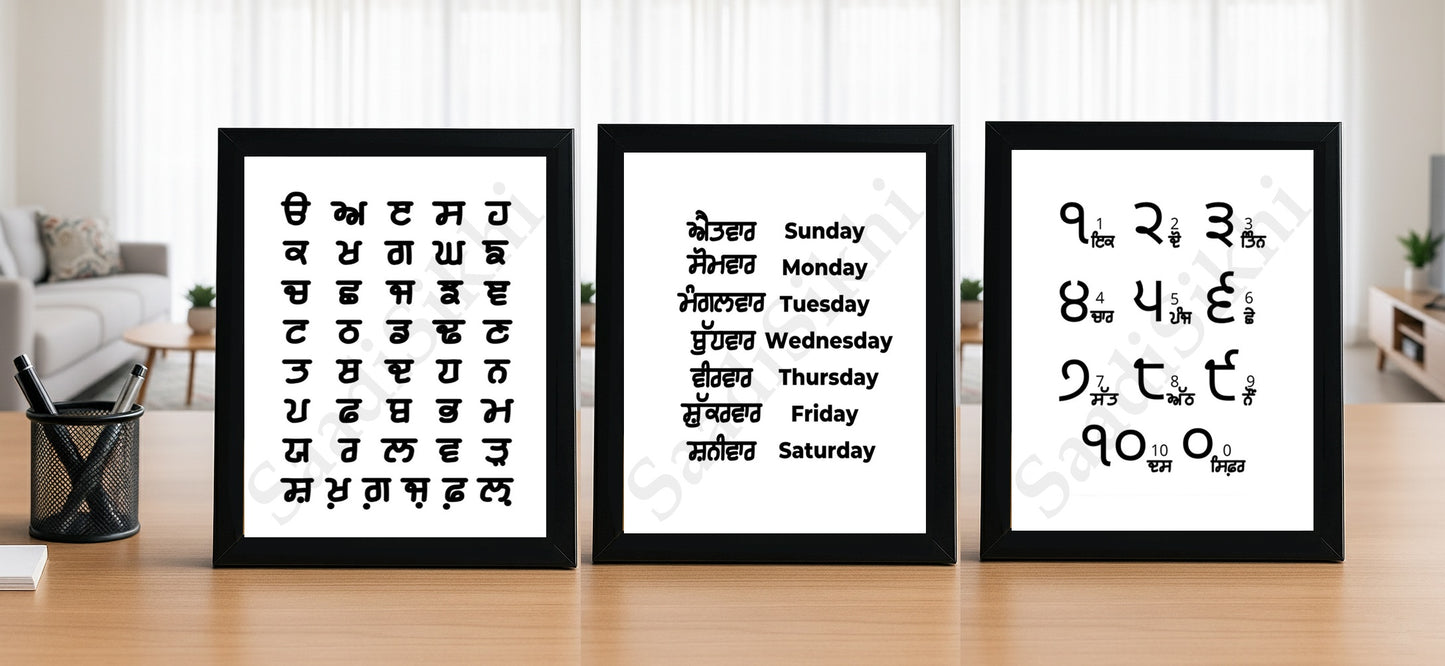 ੳ ਅ ੲ ਸ ਹ
ਕ ਖ ਗ ਘ ਙ
ਚ ਛ ਜ ਝ ਞ
ਟ ਠ ਡ ਢ ਣ
ਤ ਥ ਦ ਧ ਨ
ਪ ਫ ਬ ਭ ਮ
ਯ ਰ ਲ ਵ ੜ
ਸ਼ ਖ਼ ਗ਼ ਜ਼ ਫ਼ ਲ਼
SaadiSikhi
ਐਤਵਾਰ Sunday
ਸੋਮਵਾਰ Monday
ਮੰਗਲਵਾਰ Tuesday
ਬੁੱਧਵਾਰ Wednesday
ਵੀਰਵਾਰ Thursday
ਸ਼ੁੱਕਰਵਾਰ Friday
ਸ਼ਨੀਵਾਰ Saturday
SaadiSikhi
੧ 1 ਇਕ ੨ 2 ਦੋ ੩ 3 ਤਿੰਨ
੪ 4 ਚਾਰ ੫ 5 ਪੰਜ ੬ 6 ਛੇ
੭ 7 ਸੱਤ ੮ 8 ਅੱਠ ੯ 9 ਨੌਂ
੧੦ 10 ਦਸ ੦ 0 ਸਿਫ਼ਰ
SaadiSikhi